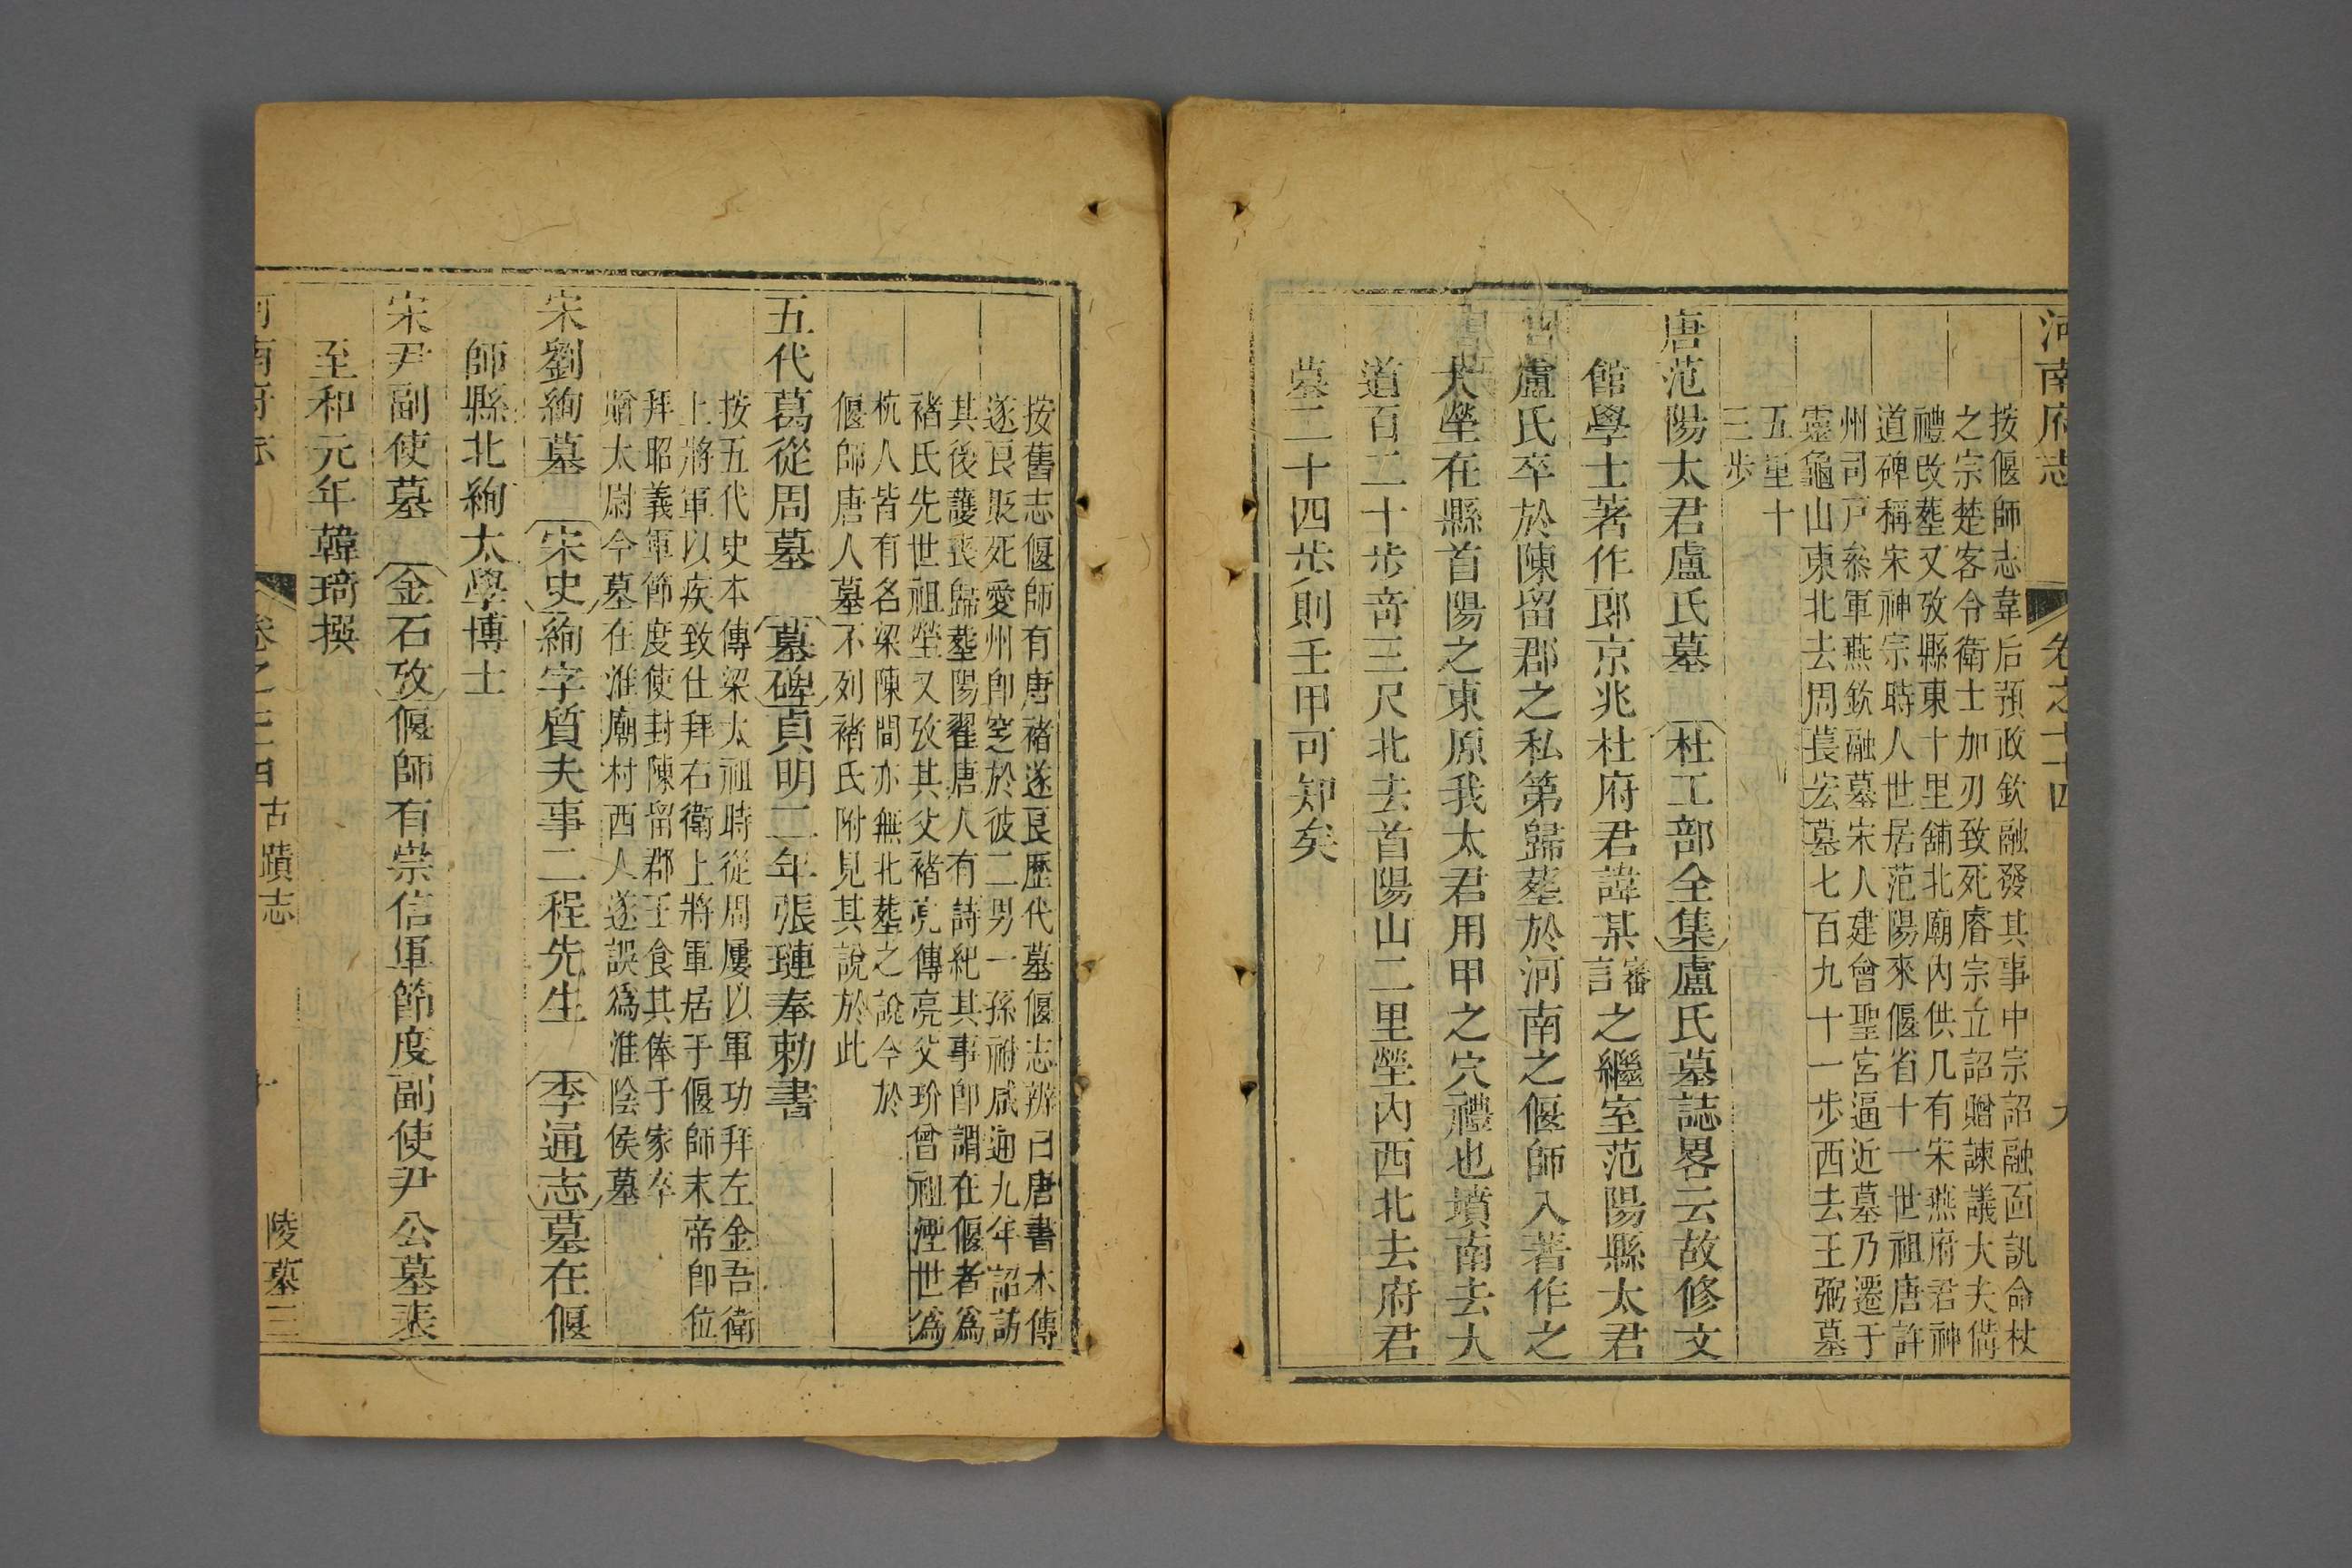 河南府志
卷之七十四
九
按偃師志韋后預政欽融發其事中宗詔融面訊命杖
之宗楚客令衛士加刃致死睿宗立詔贈諫議大夫備
禮改塟又攷縣東十里舖北廟內供几有宋燕府君神
道碑稱宋神宗時人世居范陽來偃省十一世祖唐許
州司戸叅軍燕欽融墓宋人建曾聖宮逼近墓乃遷于
靈龜山東北去周萇宏墓七百九十一步西去王弼墓
五里十
三步
唐范陽太君盧氏墓　杜工部全集盧氏墓誌畧云故修文
館學士著作郎京兆杜府君諱某審言之繼室范陽縣太君
盧氏卒於陳留郡之私第歸塟於河南之偃師入著作之
大塋在縣首陽之東原我太君用甲之穴禮也墳南去大
道百二十步奇三尺北去首陽山二里塋內西北去府君
墓二十四步則壬甲可知矣
按舊志偃師有唐褚遂良歷代墓偃志辨曰唐書本傳
遂良貶死愛州卽窆於彼二男一孫祔咸通九年詔訪
其後護喪歸塟陽翟唐人有詩紀其事卽謂在偃者爲
褚氏先世祖塋又攷其父褚亮傳亮父玠曾祖湮世爲
杭人皆有名梁陳間亦無北塟之說今於
偃師唐人墓不列褚氏附見其說於此
五代葛從周墓　墓碑貞明二年張璉奉勅書
按五代史本傳梁太祖時從周屢以軍功拜左金吾衛
上將軍以疾致仕拜右衛上將軍居于偃師末帝卽位
拜昭義軍節度使封陳留郡王食其俸于家卒
贈太尉今墓在淮廟村西人遂誤爲淮陰侯墓
宋劉絢墓　宋史絢字質夫事二程先生　季通志墓在偃
師縣北絢太學博士
宋尹副使墓　金石攷偃師有崇信軍節度副使尹公墓表
至和元年韓琦撰
河南府志
卷之七十四
古蹟志
十
陵墓三